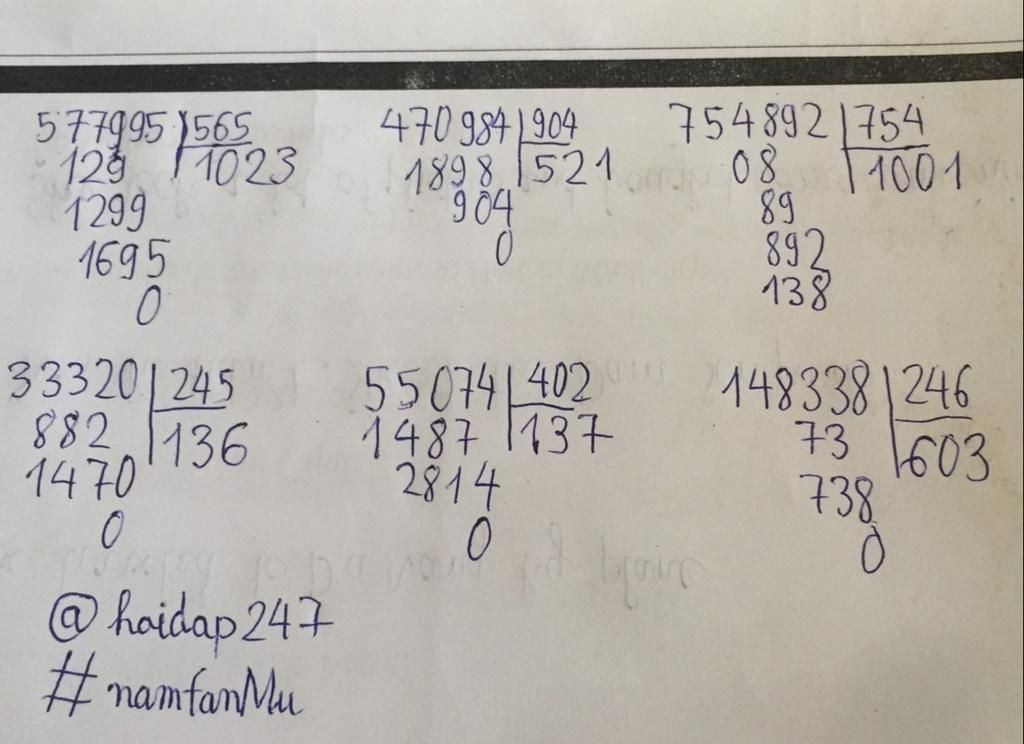 577995 565 470984 904 754892 754
129 1023 1898 521 08 1001
1299 904 89
1695 0 892
0 138
33320 245 55074 402 148338 246
882 136 1487 137 73 603
1470 2814 738
0 0 0
@hoidap247
#namfanMu